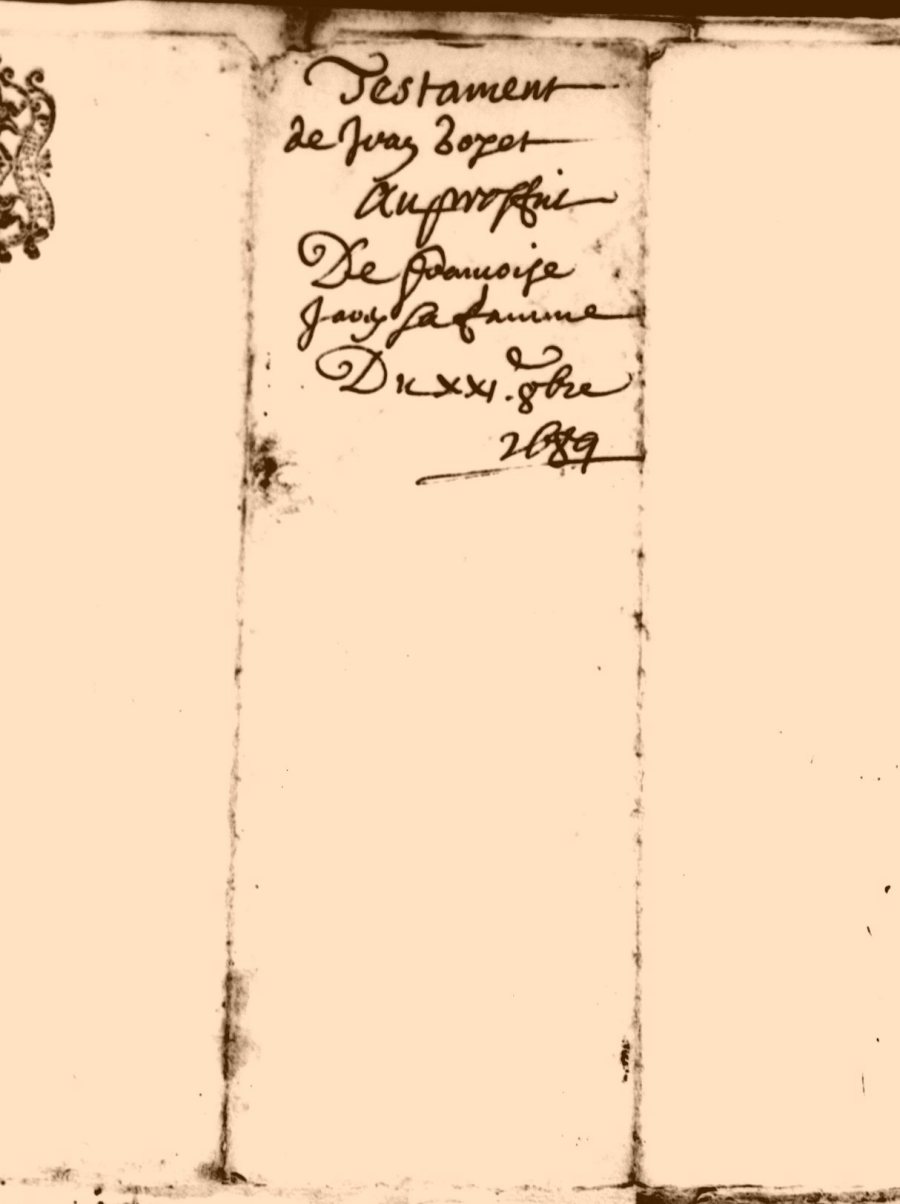 Testament
de Jean boyet
Au proffit
De francoise
sa famme
Du XXI. 8bre
1689